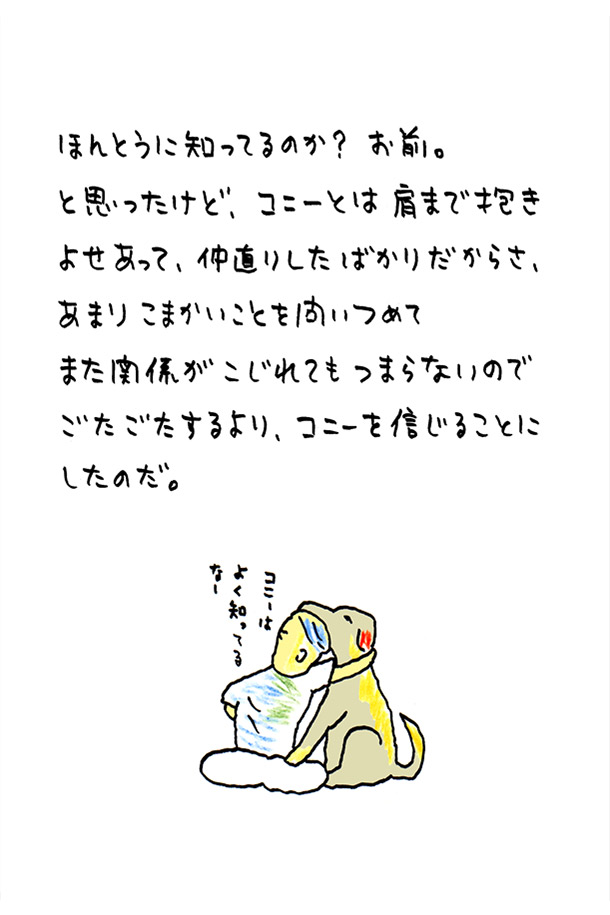 ほんとうに知ってるのか? お前。
と思ったけど、コニーとは肩まで抱き
よせあって、仲直りしたばかりだからさ、
あまりこまかいことを問いつめて
また関係がこじれてもつまらないので
ごたごたするより、コニーを信じることに
したのだ。
コニーは
よく知ってる
なー